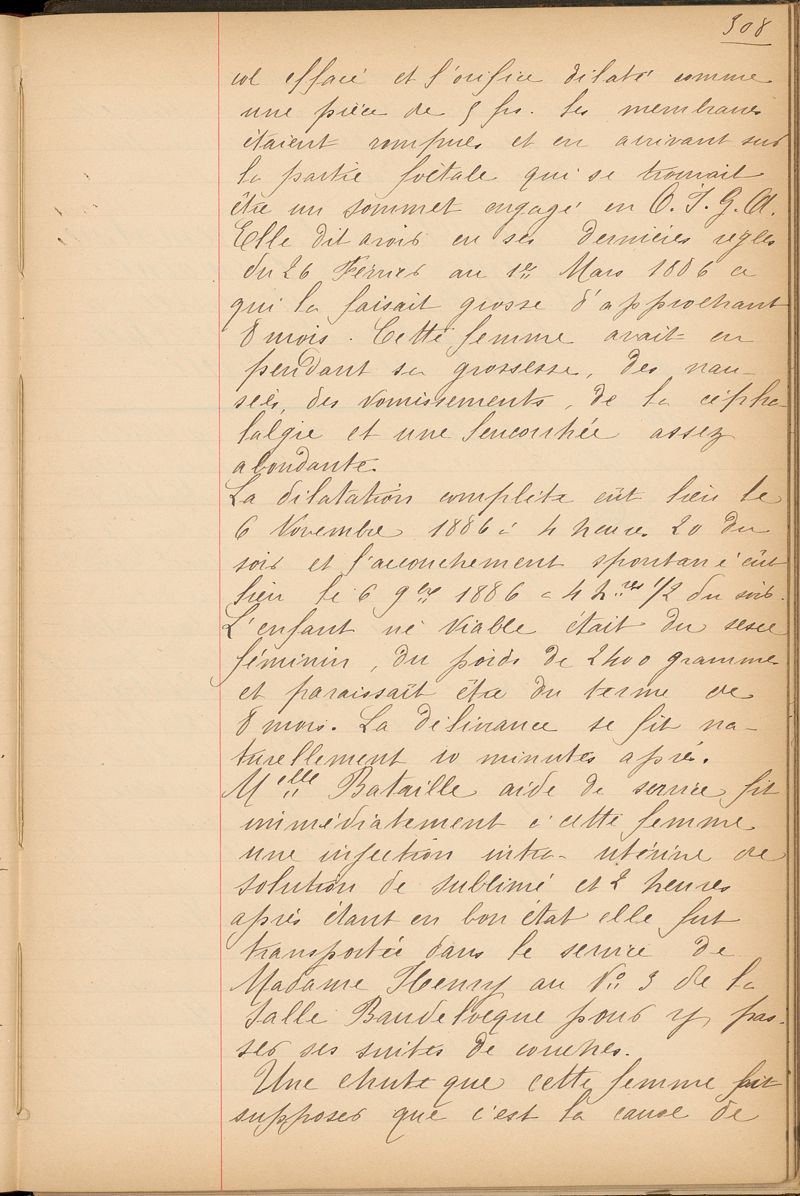 308
col effacé et l'orifice dilaté comme
une pièce de 5 frs. les membranes
étaient rompues et en arrivant sur
la partie foétale qui se trouvait
être un sommet engagé en O.I.G.A.
Elle dit avoir eu ses dernières règles
du 26 Février au 1er Mars 1886 ce
qui la faisait grosse d'approchant
8 mois. Cette femme avait eu
pendant sa grossesse, des nau-
sées, des vomissements, de la cépha-
lalgie et une leucorrhée assez
abondante.
La dilatation complète eût lieu le
6 Novembre 1886 à 4 heures 20 du
soir et l'accouchement spontané eût
lieu le 6 9bre 1886 à 4 hres 1/2 du soir.
L'enfant né viable était du sexe
féminin, du poids de 2400 grammes
et paraissait être du terme de
8 mois. La délivrance se fit na-
turellement 10 minutes après.
Melle Bataille aide de service fit
immédiatement à cette femme
une injection intra-utérine de
solution de sublimé et 2 heures
après étant en bon état elle fut
transportée dans le service de
Madame Henry au No 3 de la
Salle Baudelocque pour y pas-
ser ses suites de couches.
Une chute que cette femme fit
supposer que c'est la cause de